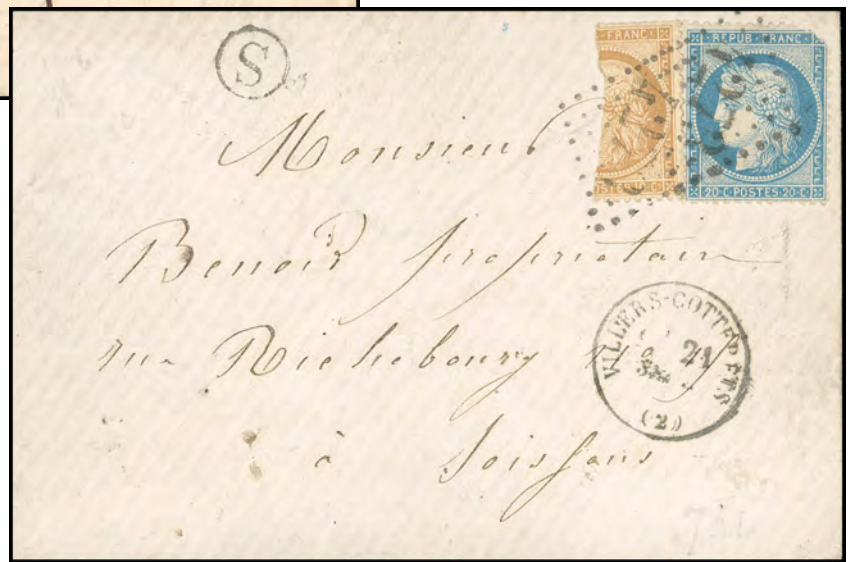 S
FRANC
REPUB FRANC
20 C POSTES 20 C
Monsieur
Benoit propriétair
rue Richebourg n°
VILLERS-COTTERETS
21
(2)
à Soissons